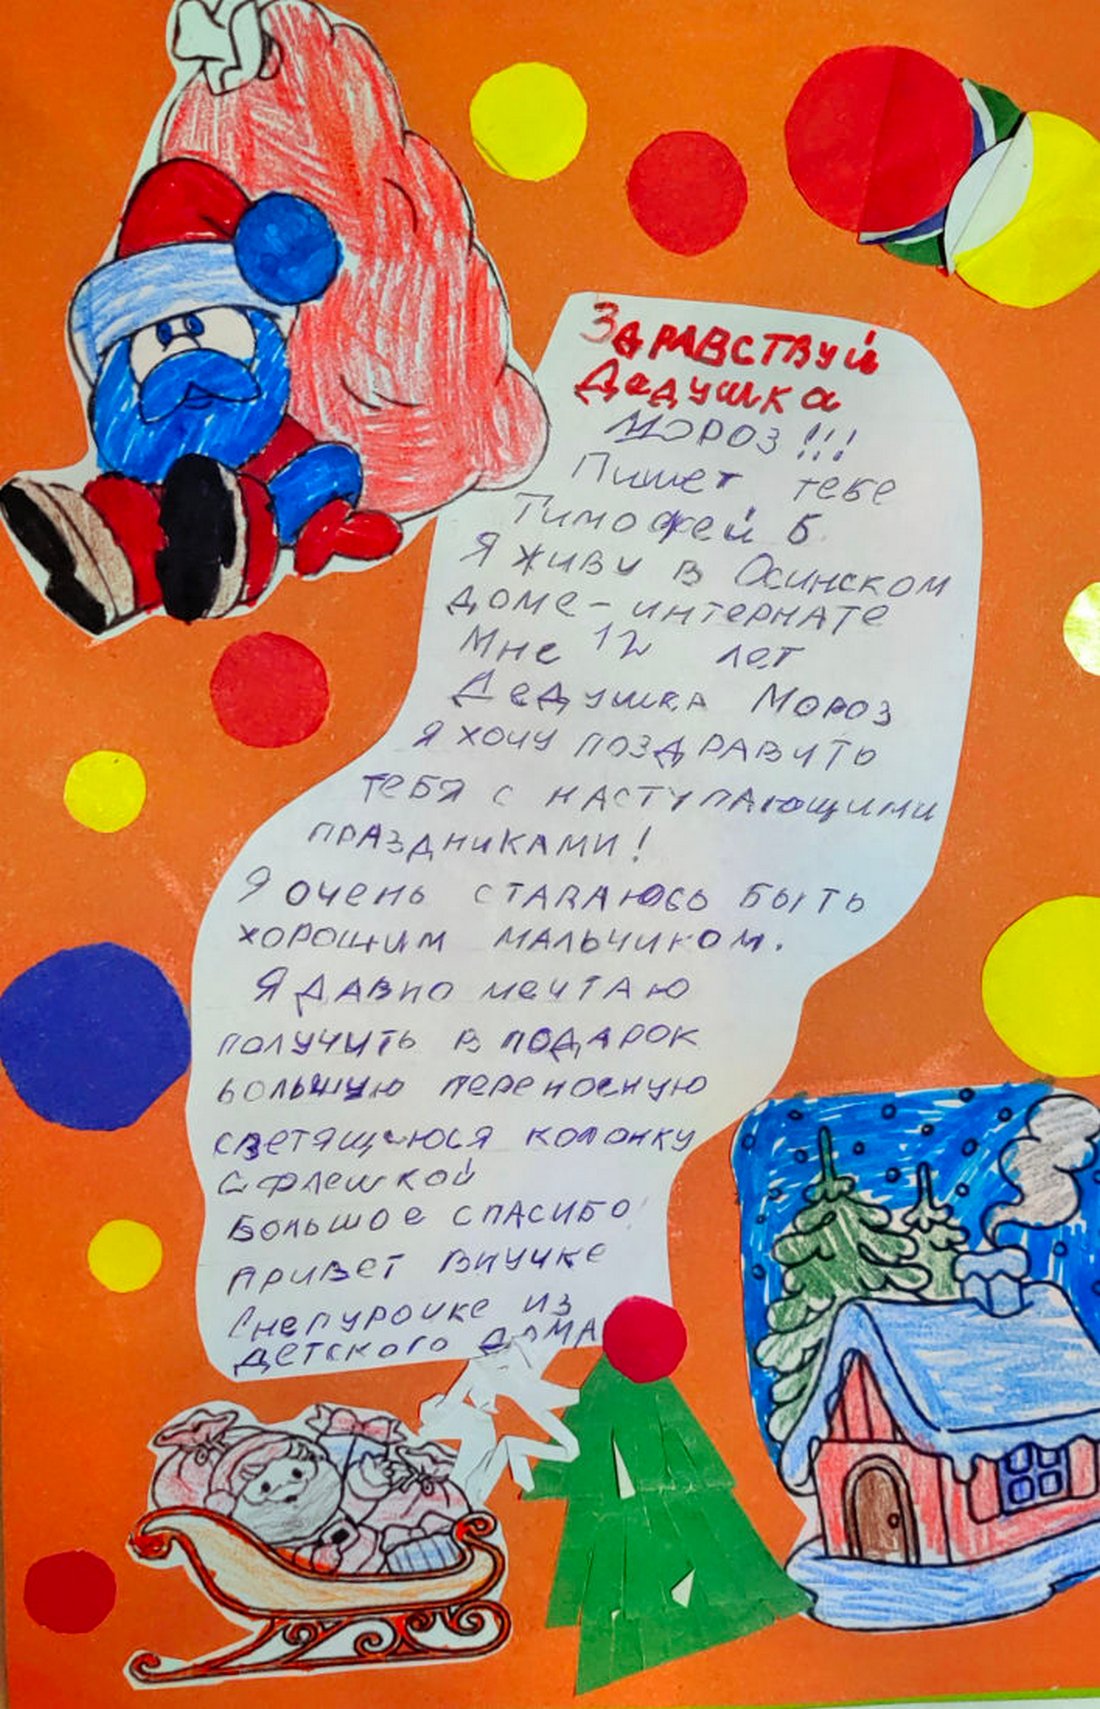 ЗДРАВСТВУЙ
Дедушка
МОРОЗ!!!
Пишет тебе
Тимофей Б.
Я живу в Осинском
доме-интернате
Мне 12 лет
Дедушка Мороз
я хочу поздравить
тебя с наступающими
праздниками!
Я очень стараюсь быть
хорошим мальчиком.
Я давно мечтаю
получить в подарок
большую переносную
светящуюся колонку
с флешкой
Большое спасибо!
привет внучке
Снегурочке из
детского дома